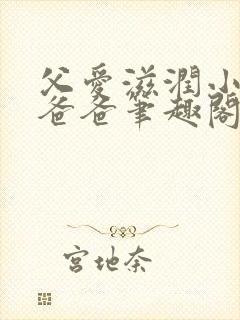 父愛滋潤小
爸爸筆趣閣
宮地奈